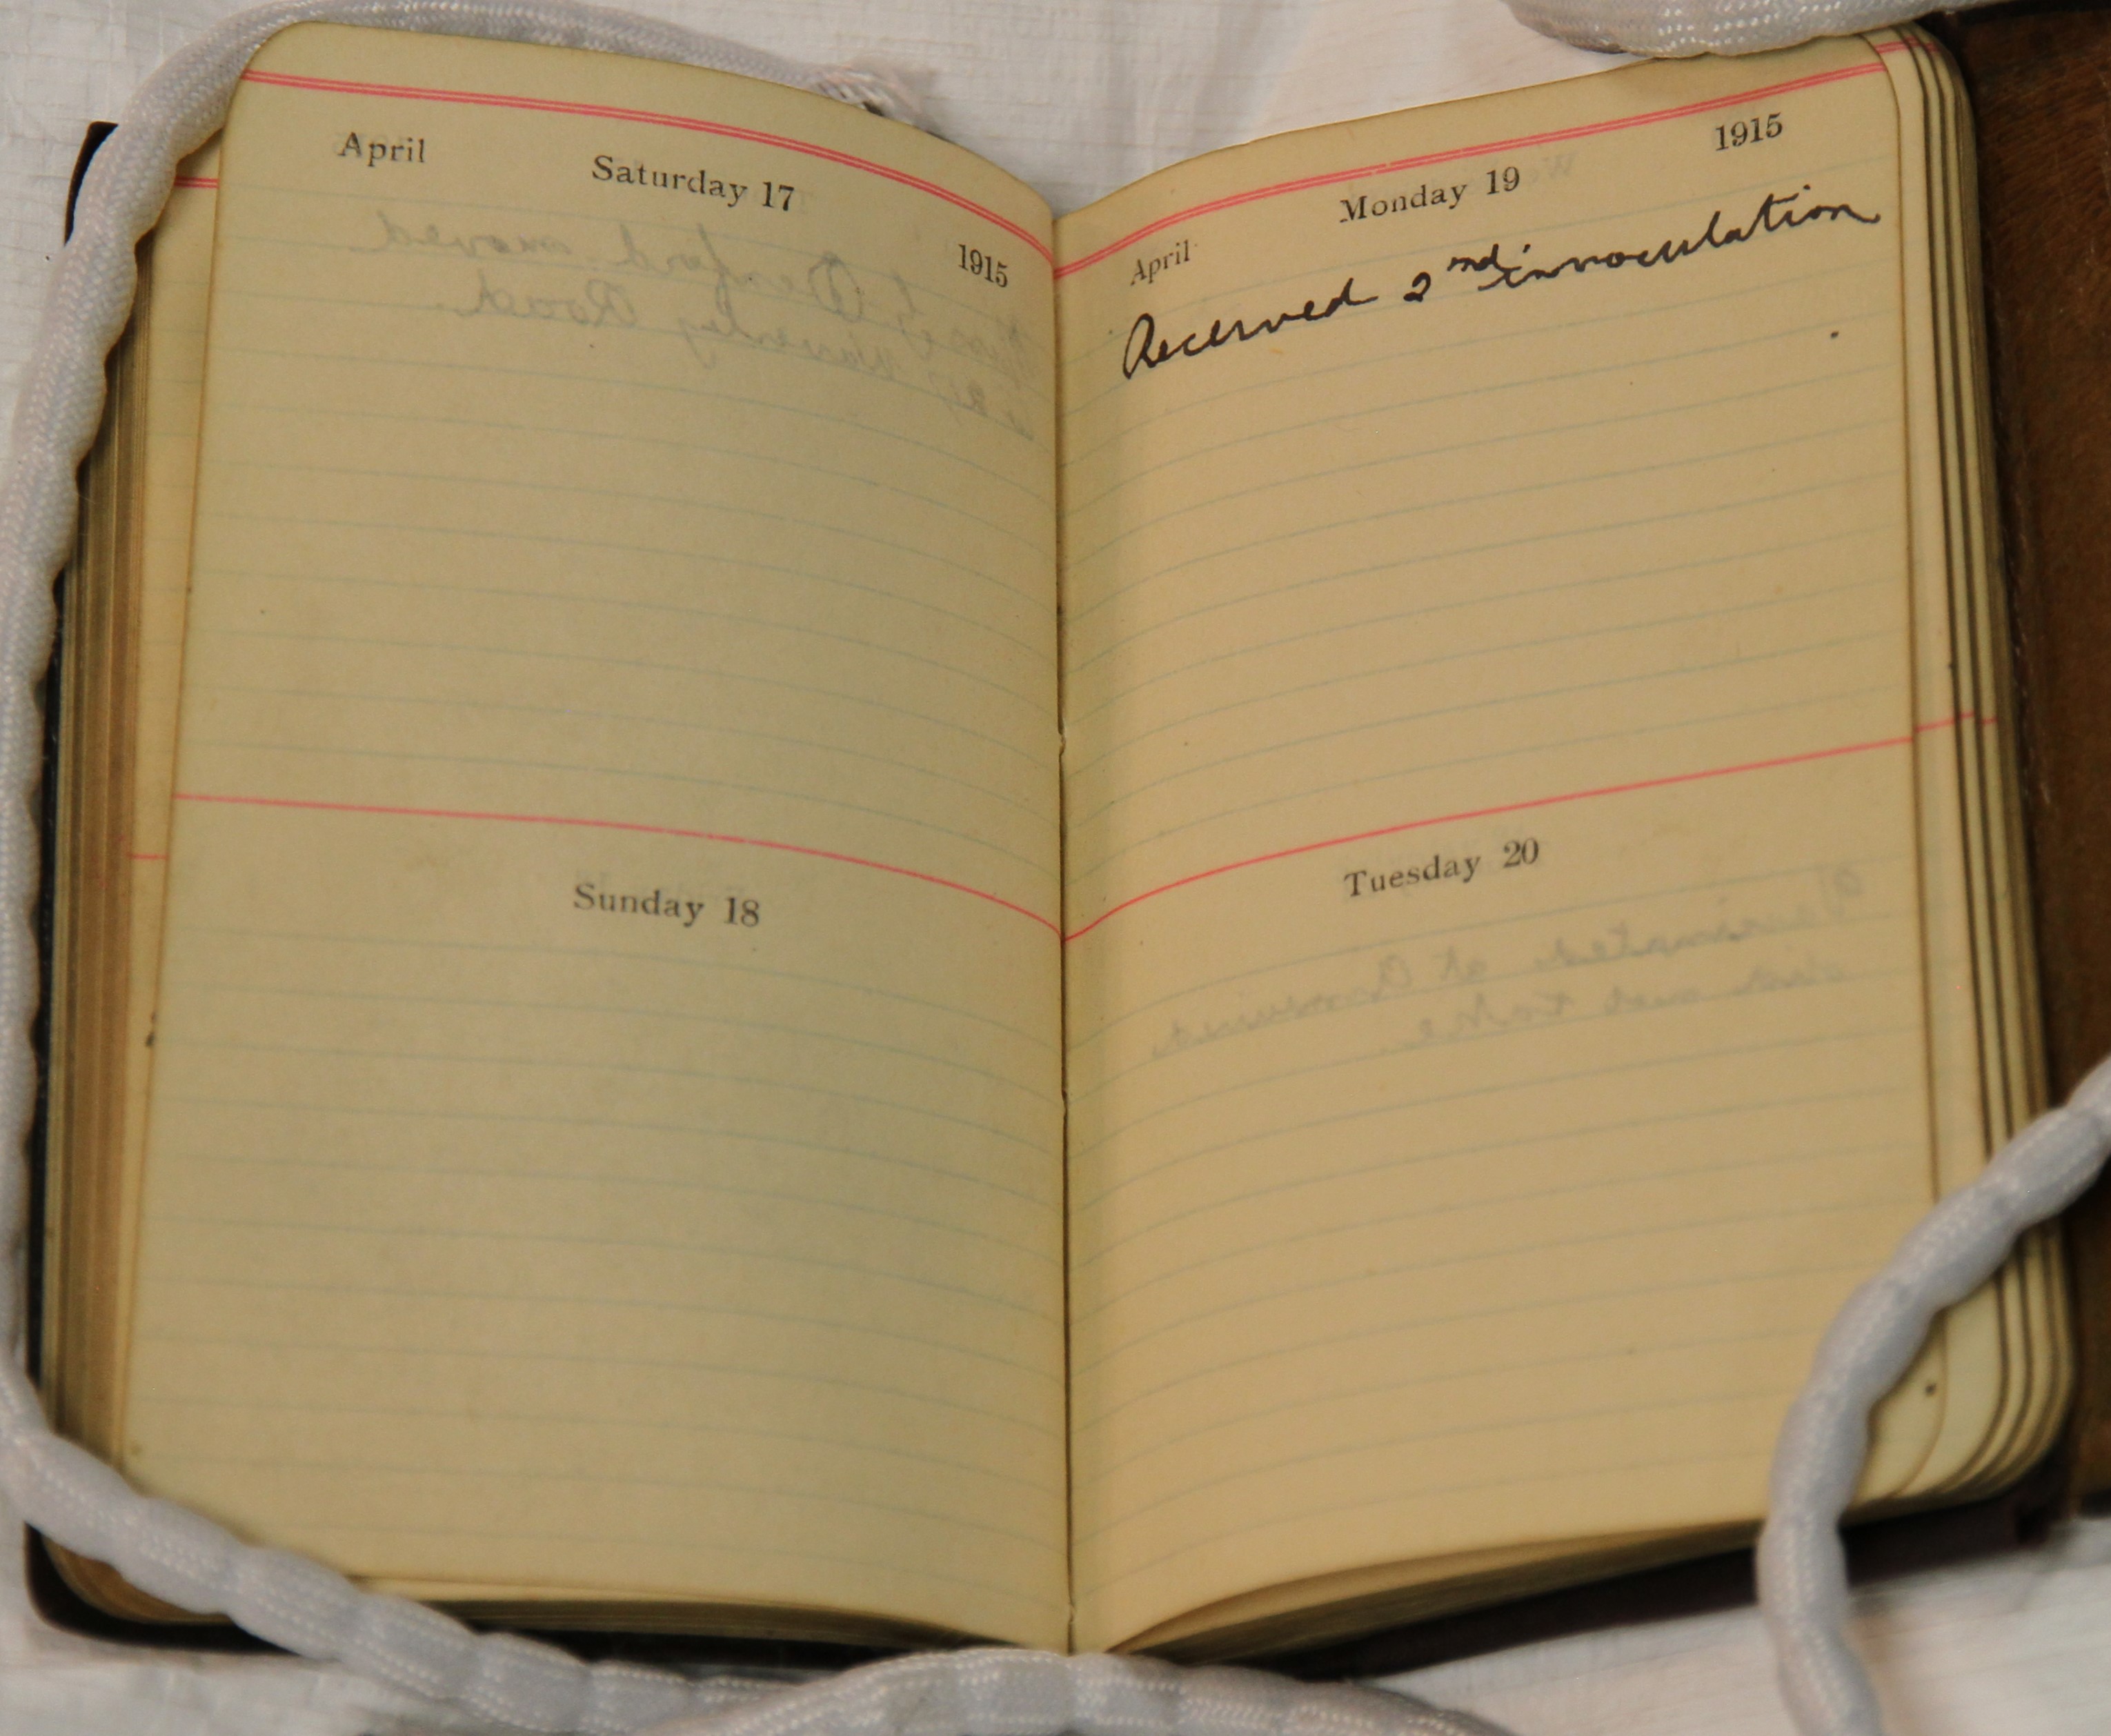 April
Saturday 17
1915
Sunday 18
1915
Monday 19
April
Received 2nd innoculation
Tuesday 20